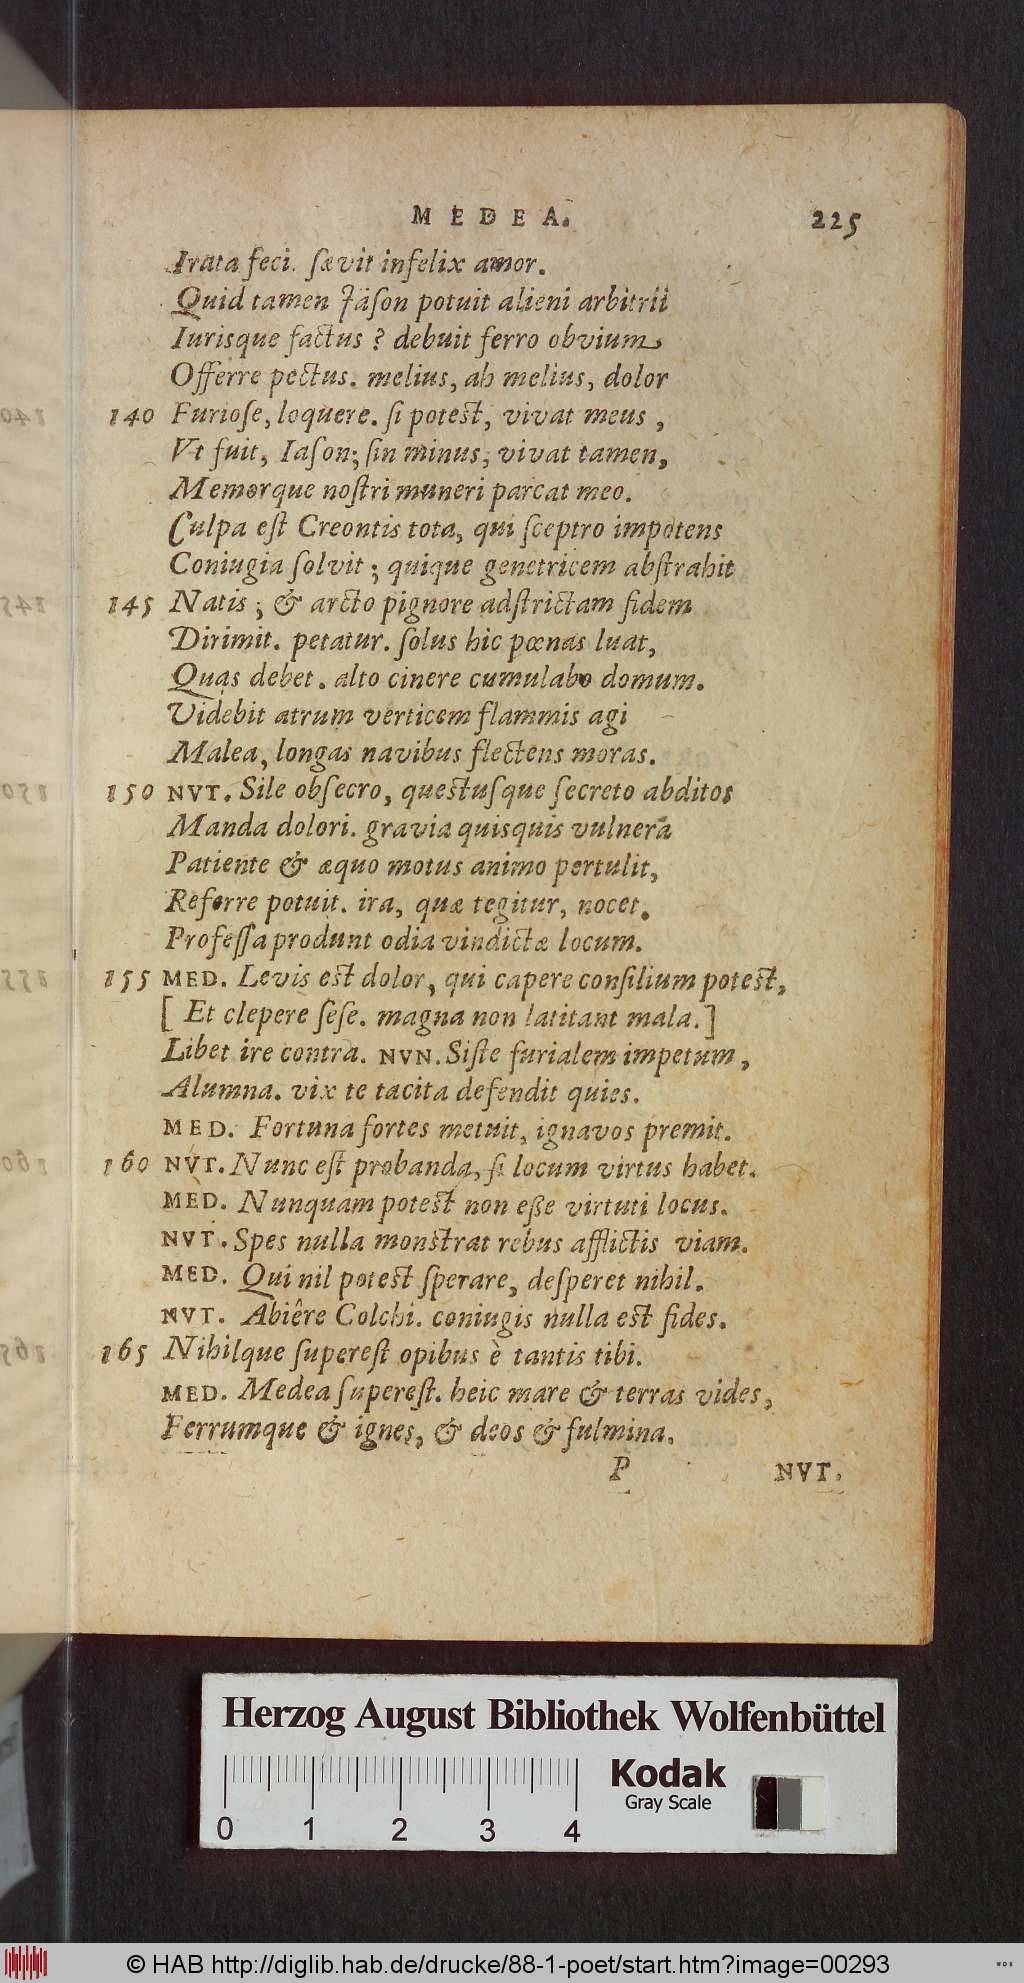 MEDEA. 225
Irata feci. sævit infelix amor.
Quid tamen Jäson potuit alieni arbitrii
Iurisque factus ? debuit ferro obvium
Offerre pectus. melius, ah melius, dolor
140 Furiose, loquere. si potest, vivat meus ,
Vt fuit, Iason; sin minus, vivat tamen,
Memorque nostri muneri parcat meo.
Culpa est Creontis tota, qui sceptro impotens
Coniugia solvit ; quique genetricem abstrahit
145 Natis ; & arcto pignore adstrictam fidem
Dirimit. petatur. solus hic pœnas luat,
Quas debet. alto cinere cumulabo domum.
Videbit atrum verticem flammis agi
Malea, longas navibus flectens moras.
150 NVT. Sile obsecro, questusque secreto abditos
Manda dolori. gravia quisquis vulnera
Patiente & æquo motus animo pertulit,
Referre potuit. ira, quæ tegitur, nocet.
Professa produnt odia vindictæ locum.
155 MED. Levis est dolor, qui capere consilium potest,
[ Et clepere sese. magna non latitant mala.]
Libet ire contra. NVN. Siste furialem impetum ,
Alumna. vix te tacita defendit quies.
MED. Fortuna fortes metuit, ignavos premit.
160 NVT. Nunc est probanda, si locum virtus habet.
MED. Nunquam potest non esse virtuti locus.
NVT. Spes nulla monstrat rebus afflictis viam.
MED. Qui nil potest sperare, desperet nihil.
NVT. Abiêre Colchi. coniugis nulla est fides.
165 Nihilque superest opibus è tantis tibi.
MED. Medea superest. heic mare & terras vides,
Ferrumque & ignes, & deos & fulmina.
P NVT.
Herzog August Bibliothek Wolfenbüttel
Kodak
Gray Scale
0 1 2 3 4
© HAB http://diglib.hab.de/drucke/88-1-poet/start.htm?image=00293